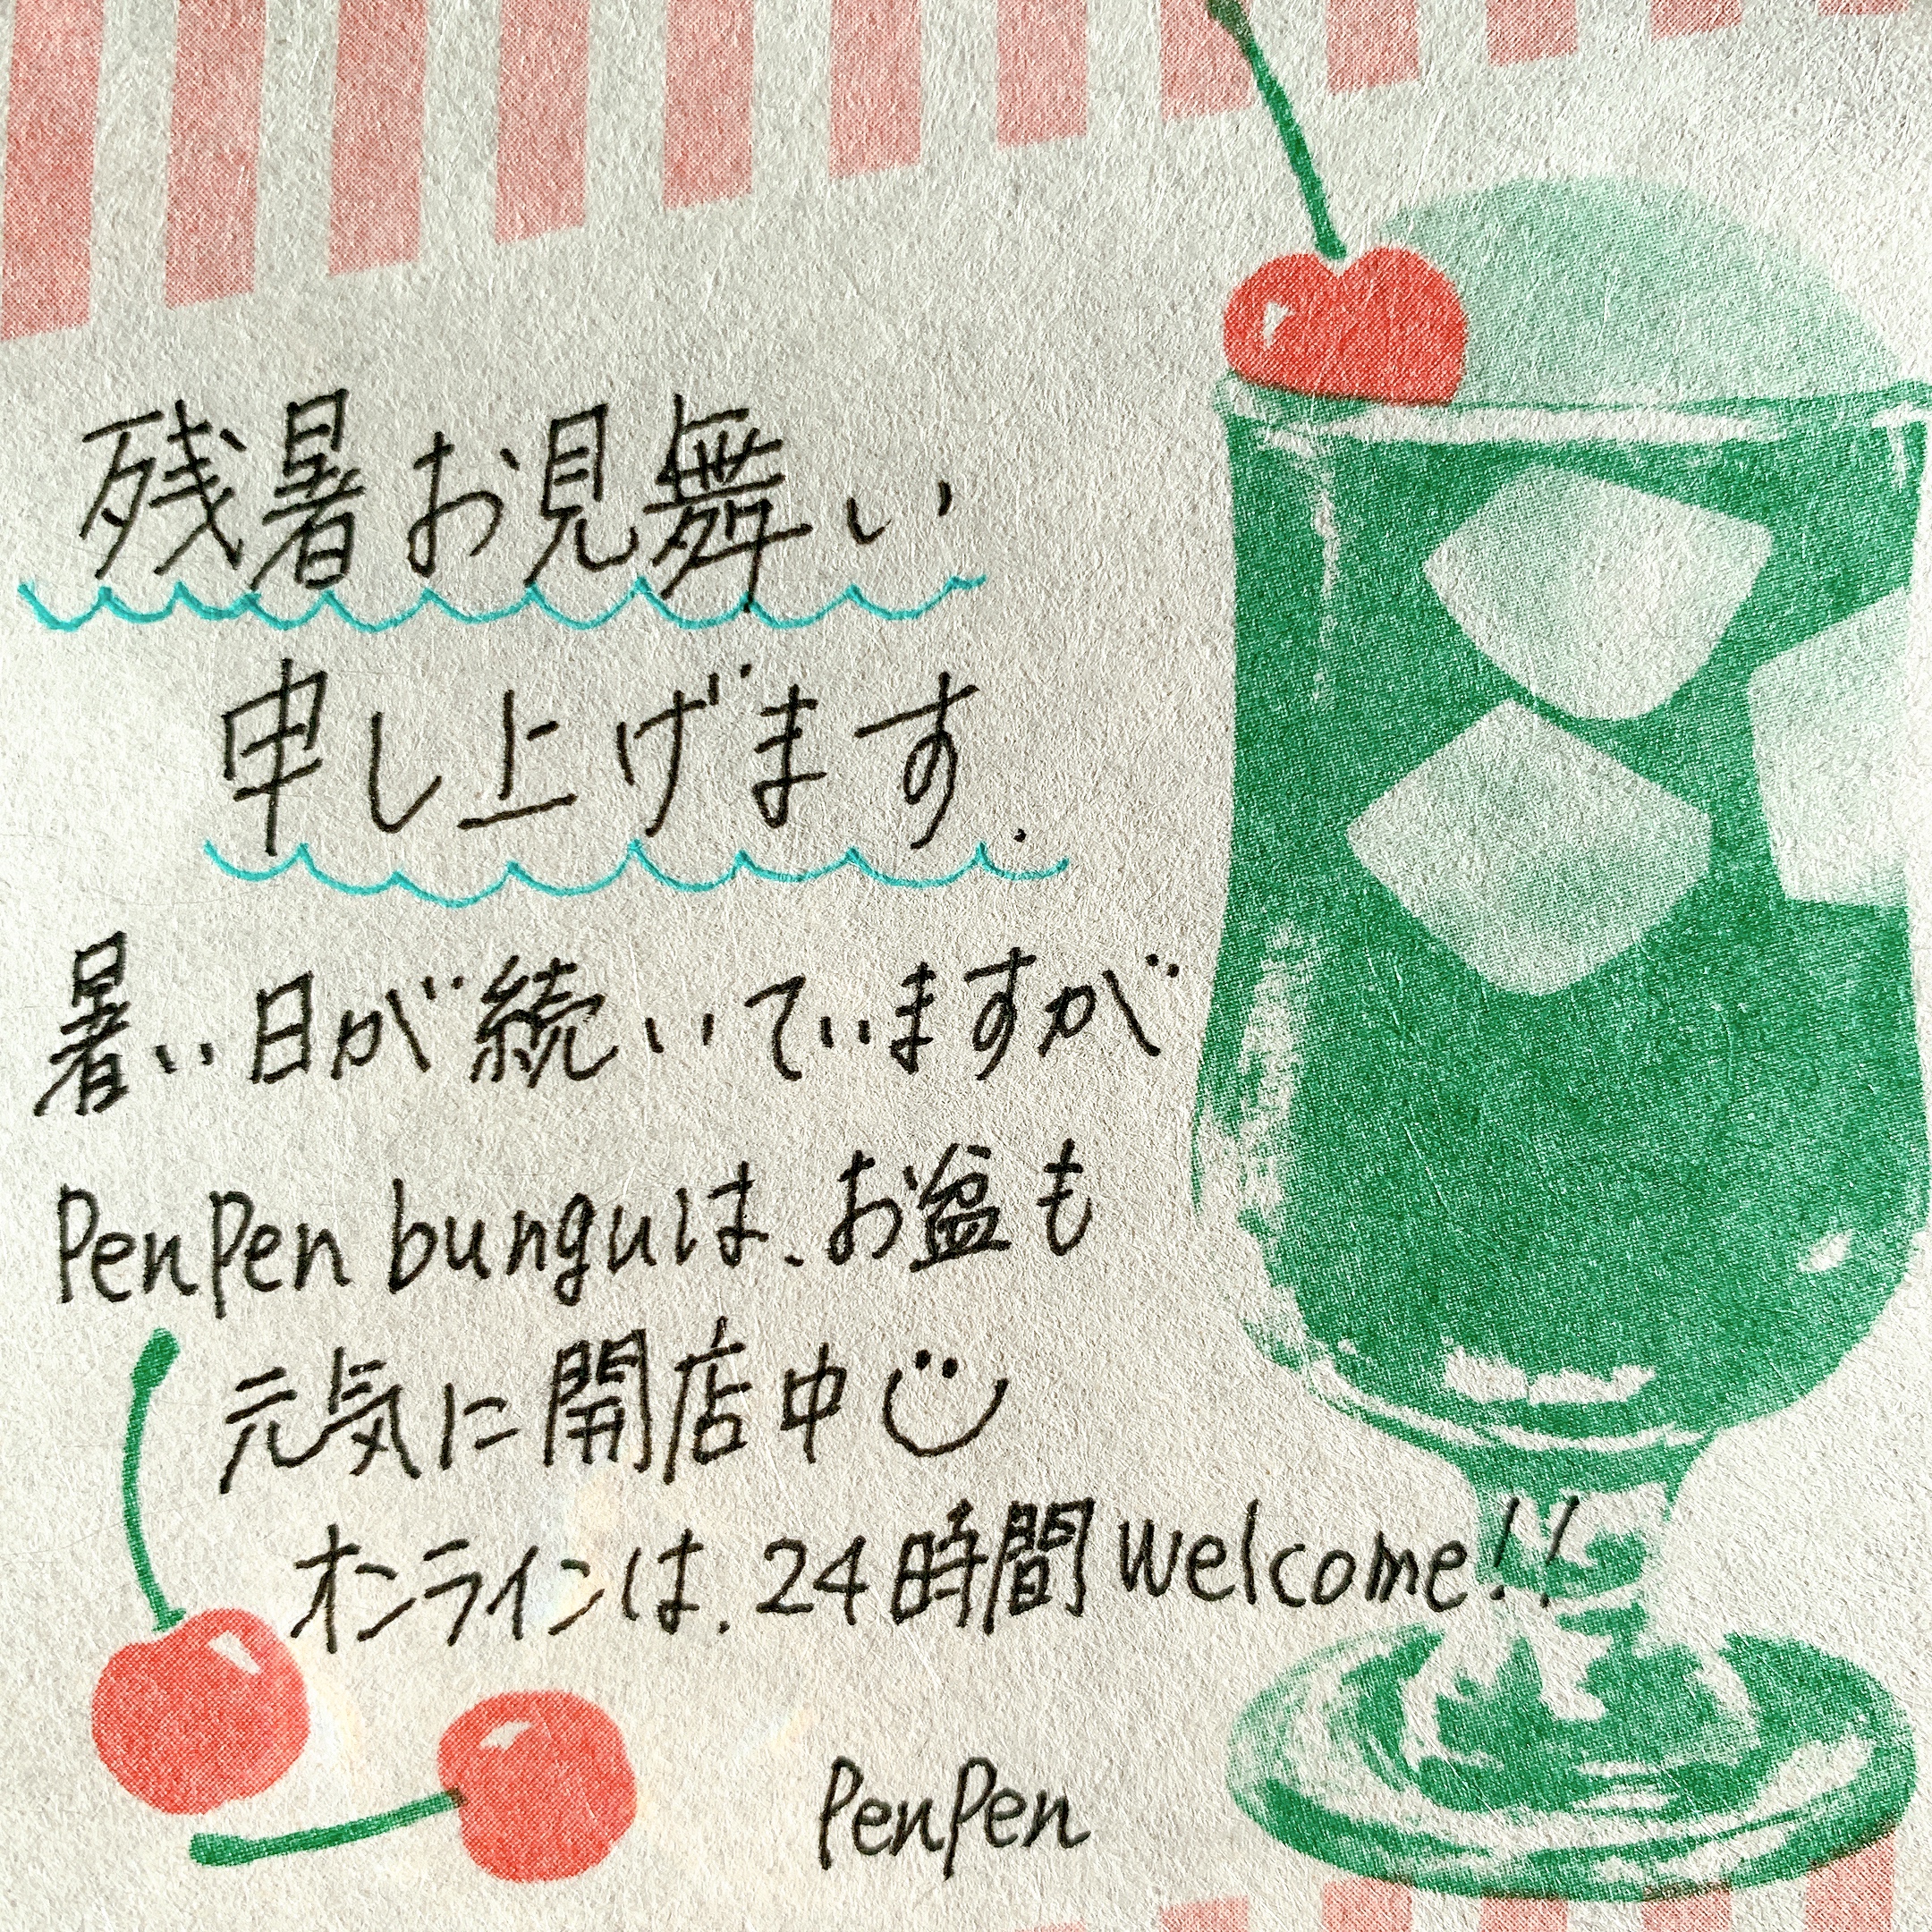 残暑お見舞い
申し上げます.
暑い日が続いていますが
PenPen bunguは、お盆も
元気に開店中
オンラインは、24時間welcome!!
PenPen